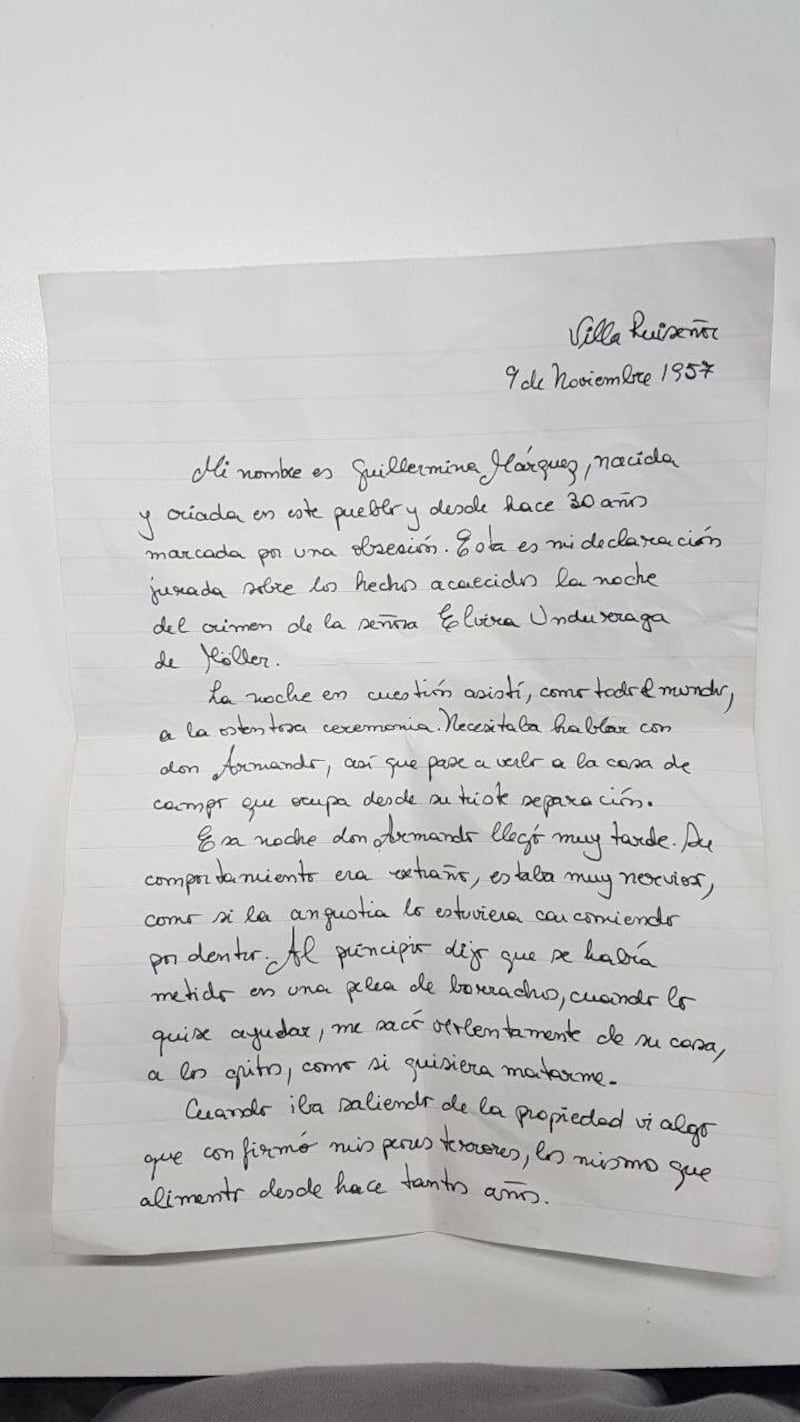 Villa Ruiseñor
9 de Noviembre 1957
Mi nombre es Guillermina Márquez, nacida
y criada en este pueblo y desde hace 30 años
marcada por una obsesión. Esta es mi declaración
jurada sobre los hechos acaecidos la noche
del crimen de la señora Elvira Undurraga
de Möller.
La noche en cuestión asistí, como todo el mundo,
a la ostentosa ceremonia. Necesitaba hablar con
don Armando, así que pase a verlo a la casa de
campo que ocupa desde su triste separación.
Esa noche don Armando llegó muy tarde. Su
comportamiento era extraño, estaba muy nervioso,
como si la angustia lo estuviera carcomiendo
por dentro. Al principio dijo que se había
metido en una pelea de borrachos, cuando lo
quise ayudar, me sacó violentamente de su casa,
a los gritos, como si quisiera matarme.
Cuando iba saliendo de la propiedad vi algo
que confirmó mis peores terrores, los mismo que
alimento desde hace tantos años.